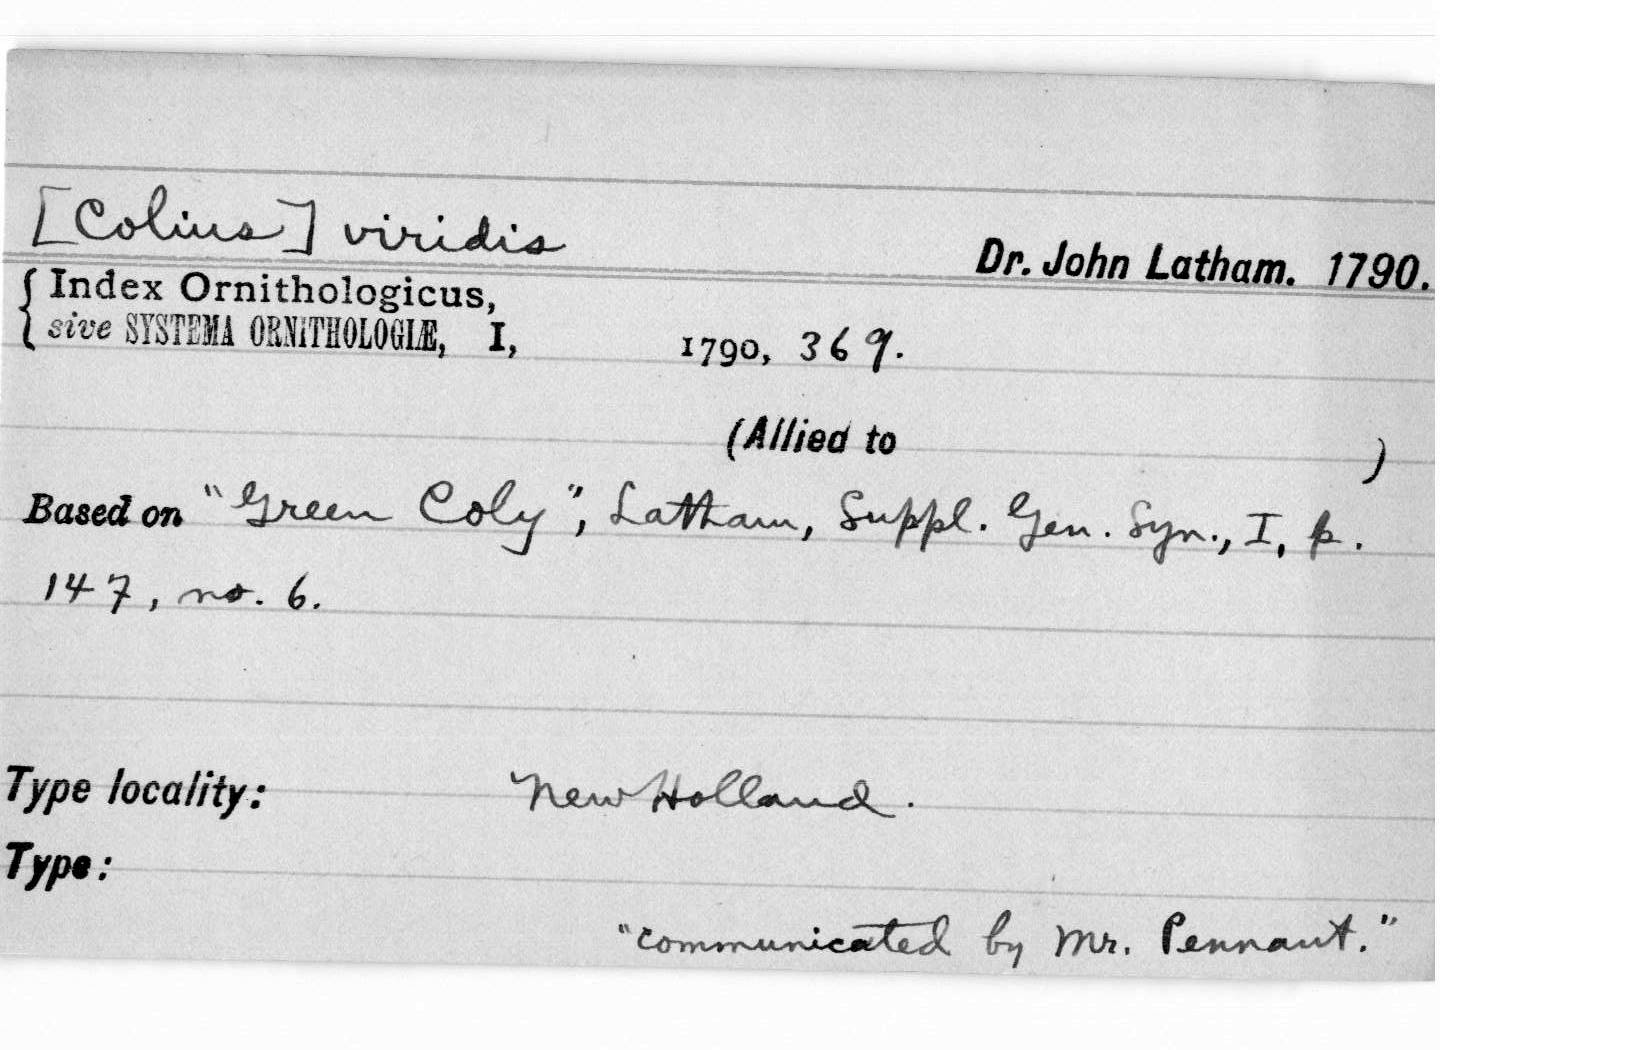 [Colius] viridis
Dr. John Latham. 1790.
{ Index Ornithologicus,
sive SYSTEMA ORNITHOLOGIÆ, I, 1790, 369.
(Allied to )
Based on "Green Coly", Latham, Suppl. Gen. Syn., I, p.
147, no. 6.
Type locality: New Holland.
Type:
"communicated by Mr. Pennant."